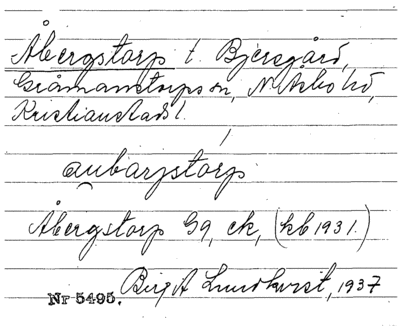 Åbergstorp t. Bjersgård,
Gråmanstorps sn, N. Åsbo hd,
Kristianstads l.
aubarjstorp
Åbergstorp Gg, ek, (kb 1931.)
Nr 5495. Birgit Lundkvist, 1937